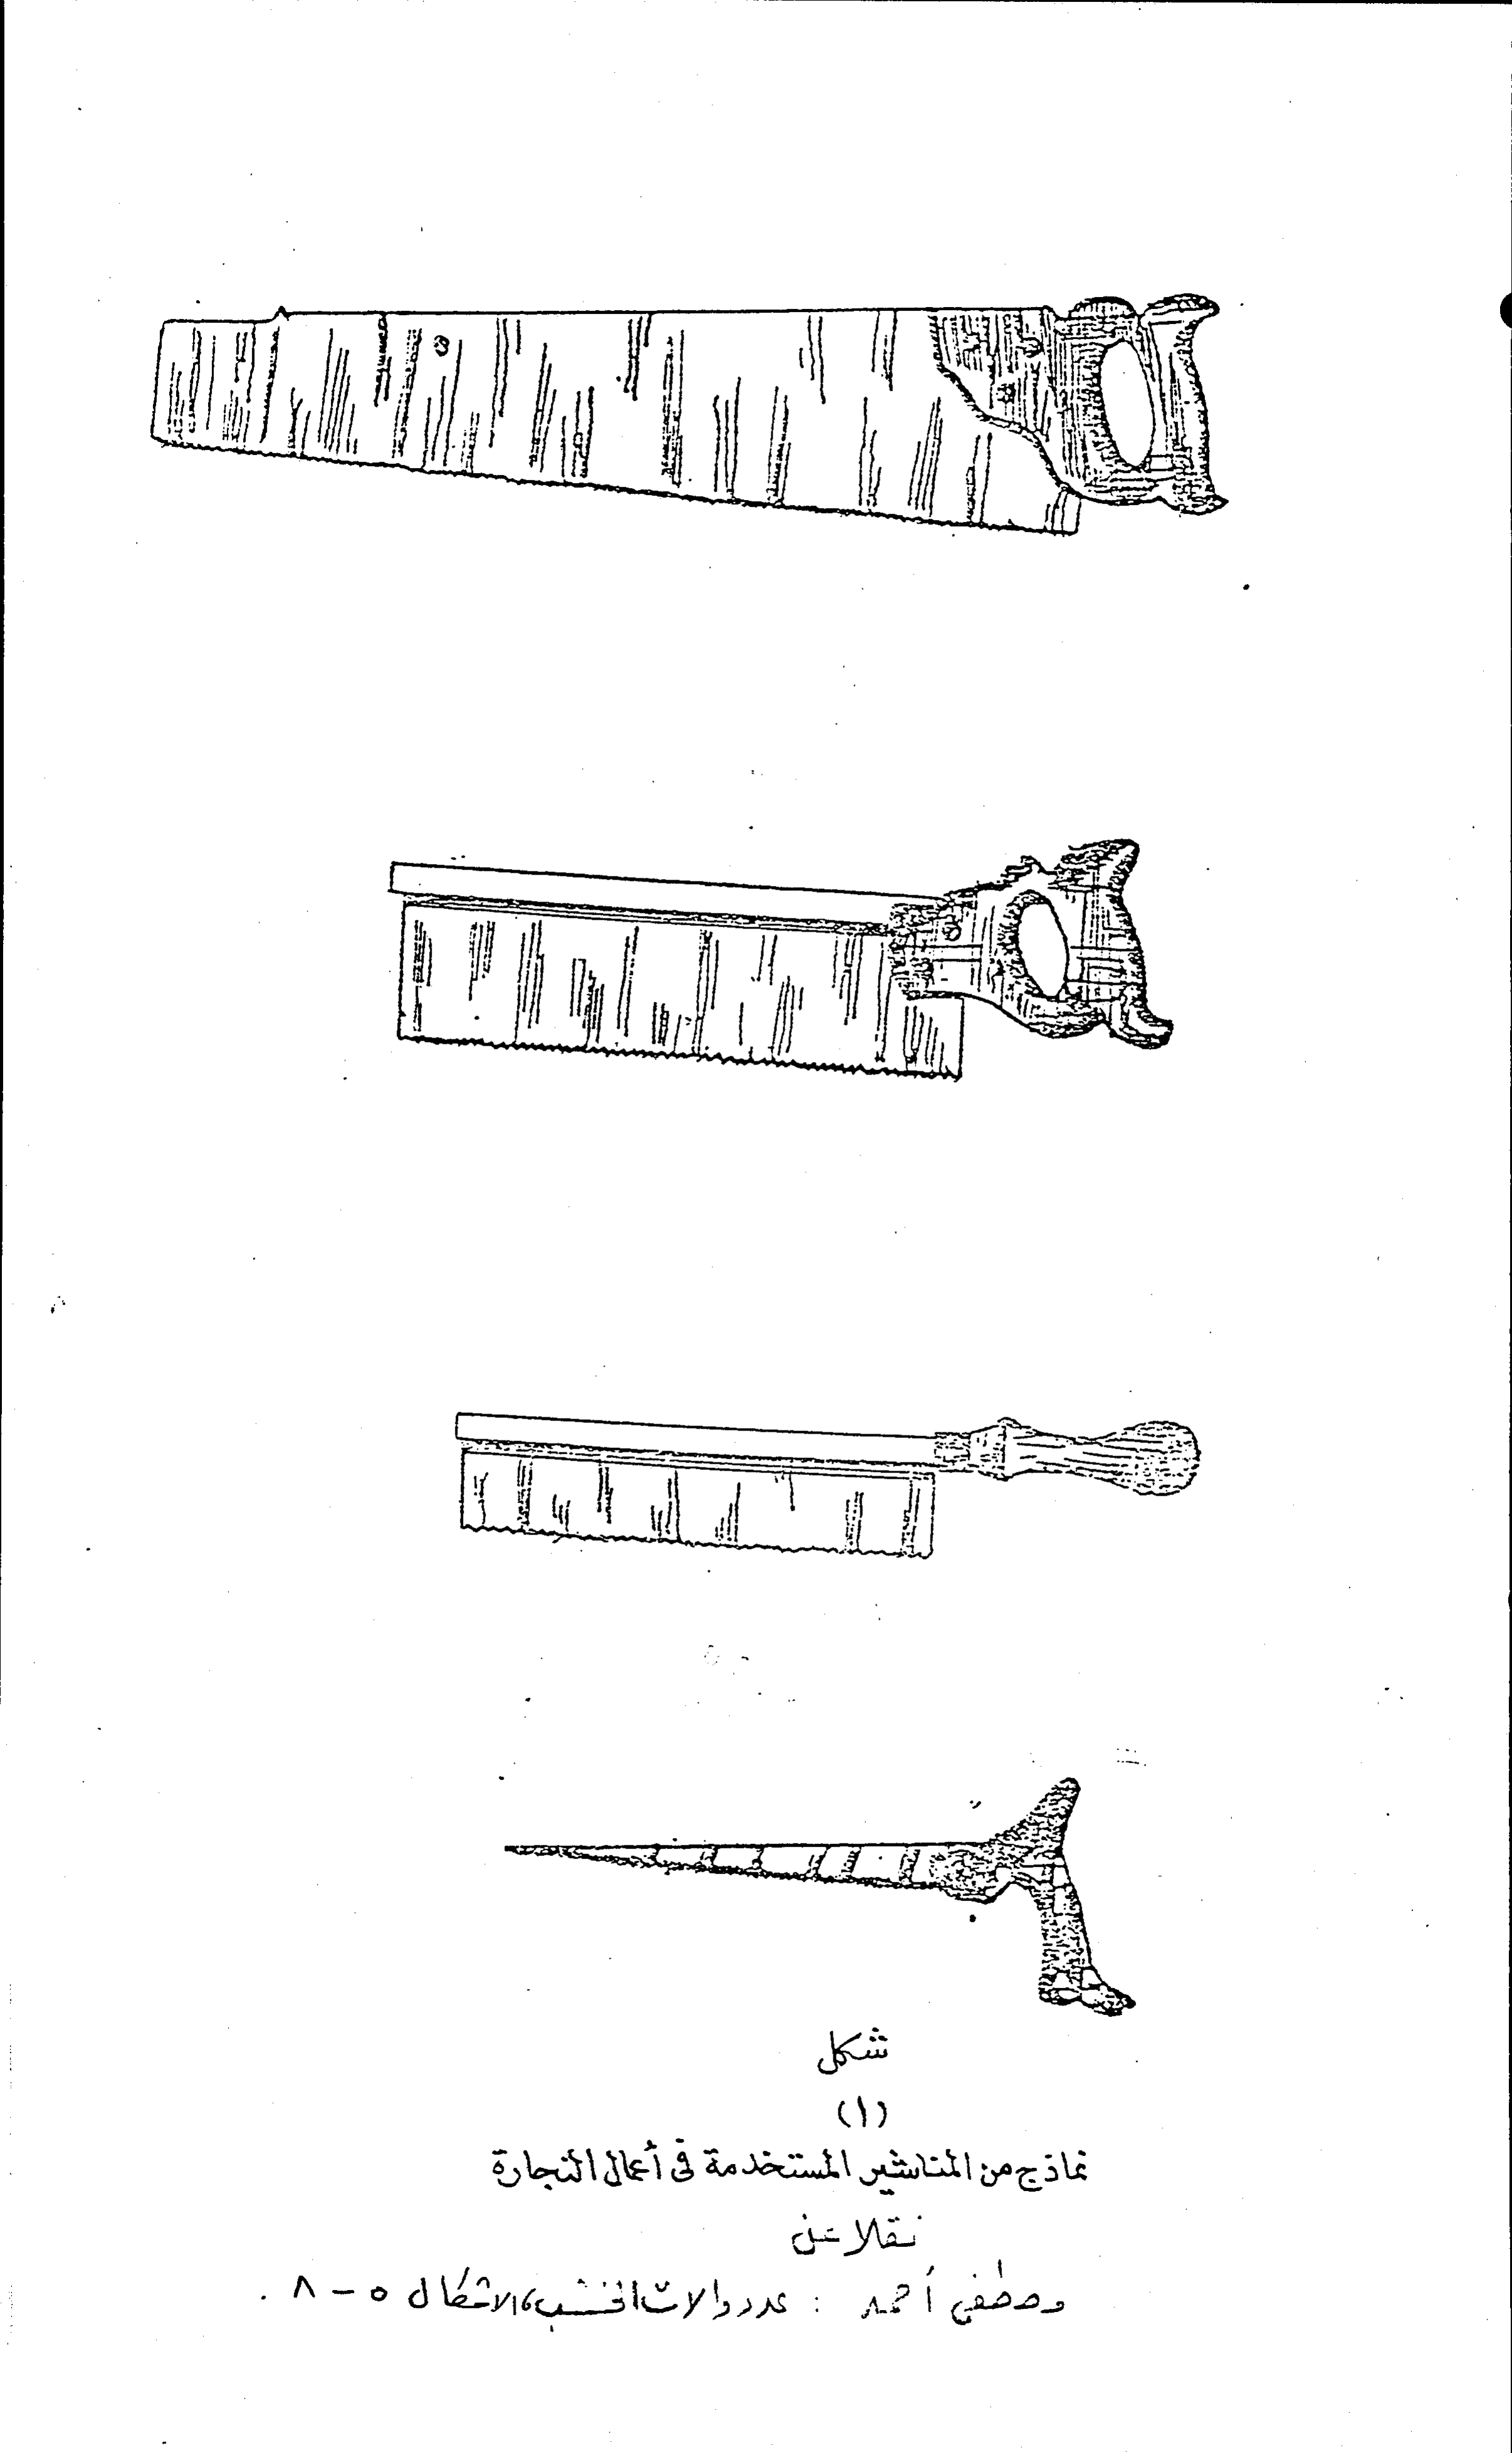 شكل
(١)
نماذج من المناشير المستخدمة فى أعمال النجارة
نقلا عن
مصطفى أحمد : عدد والات الخشب، الاشكال ٥ - ٨ .